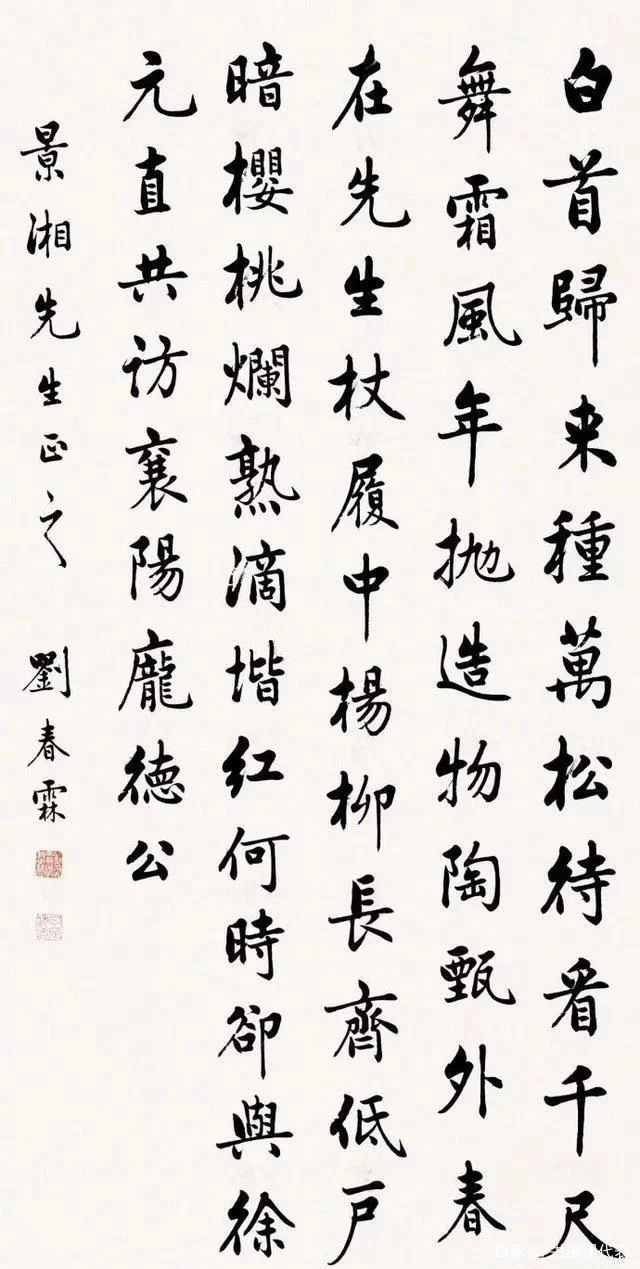 白首歸来種萬松待看千尺
舞霜風年抛造物陶甄外春
在先生杖履中楊柳長齊低戸
暗櫻桃爛熟滴堦紅何時卻與徐
元直共访襄陽龐德公
景湘先生正之
劉春霖